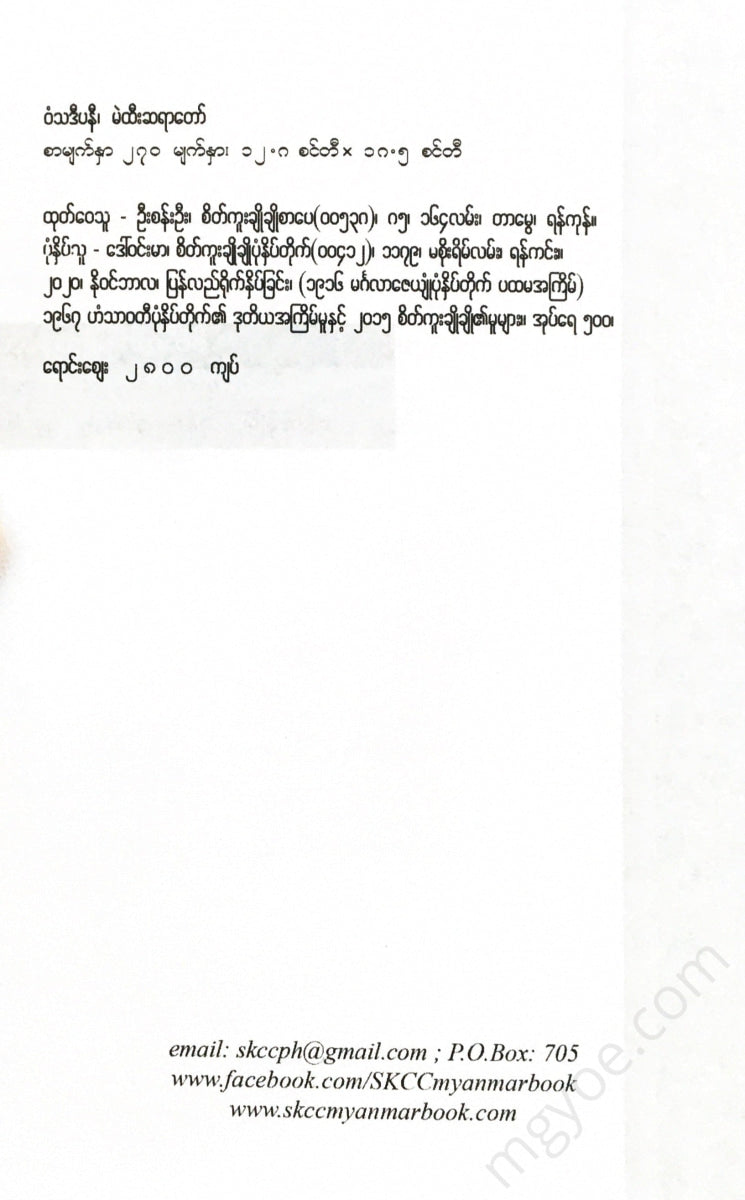 ဝံသဒီပနီ၊ မဲထီးဆရာတော်
စာမျက်နှာ ၂၇၀ မျက်နှာ၊ ၁၂.ဂ စင်တီ× ၁ဂ.၅ စင်တီ
ထုတ်ဝေသူ - ဦးစန်းဦး၊ စိတ်ကူးချိုချိုစာပေ(၀၀၅၃ဂ)၊ ဂ၅၊ ၁၆၄လမ်း၊ တာမွေ၊ ရန်ကုန်။
ပုံနှိပ်သူ - ဒေါ်ဝင်းမာ၊ စိတ်ကူးချိုချိုပုံနှိပ်တိုက်(၀၀၄၁၂)၊ ၁၁၇၉၊ မစိုးရိမ်လမ်း၊ ရန်ကင်း။
၂၀၂၀၊ နိုဝင်ဘာလ၊ ပြန်လည်ရိုက်နှိပ်ခြင်း၊ (၁၉၁၆ မင်္ဂလာဇေယျုံပုံနှိပ်တိုက် ပထမအကြိမ်)
၁၉၆၇ ဟံသာဝတီပုံနှိပ်တိုက်၏ ဒုတိယအကြိမ်မူနှင့် ၂၀၁၅ စိတ်ကူးချိုချို၏မူများ။ အုပ်ရေ ၅၀၀၊
ရောင်းဈေး ၂၈၀၀ ကျပ်
email: skccph@gmail.com ; P.O.Box: 705
www.facebook.com/SKCCmyanmarbook
www.skccmyanmarbook.com
mgyoe.com